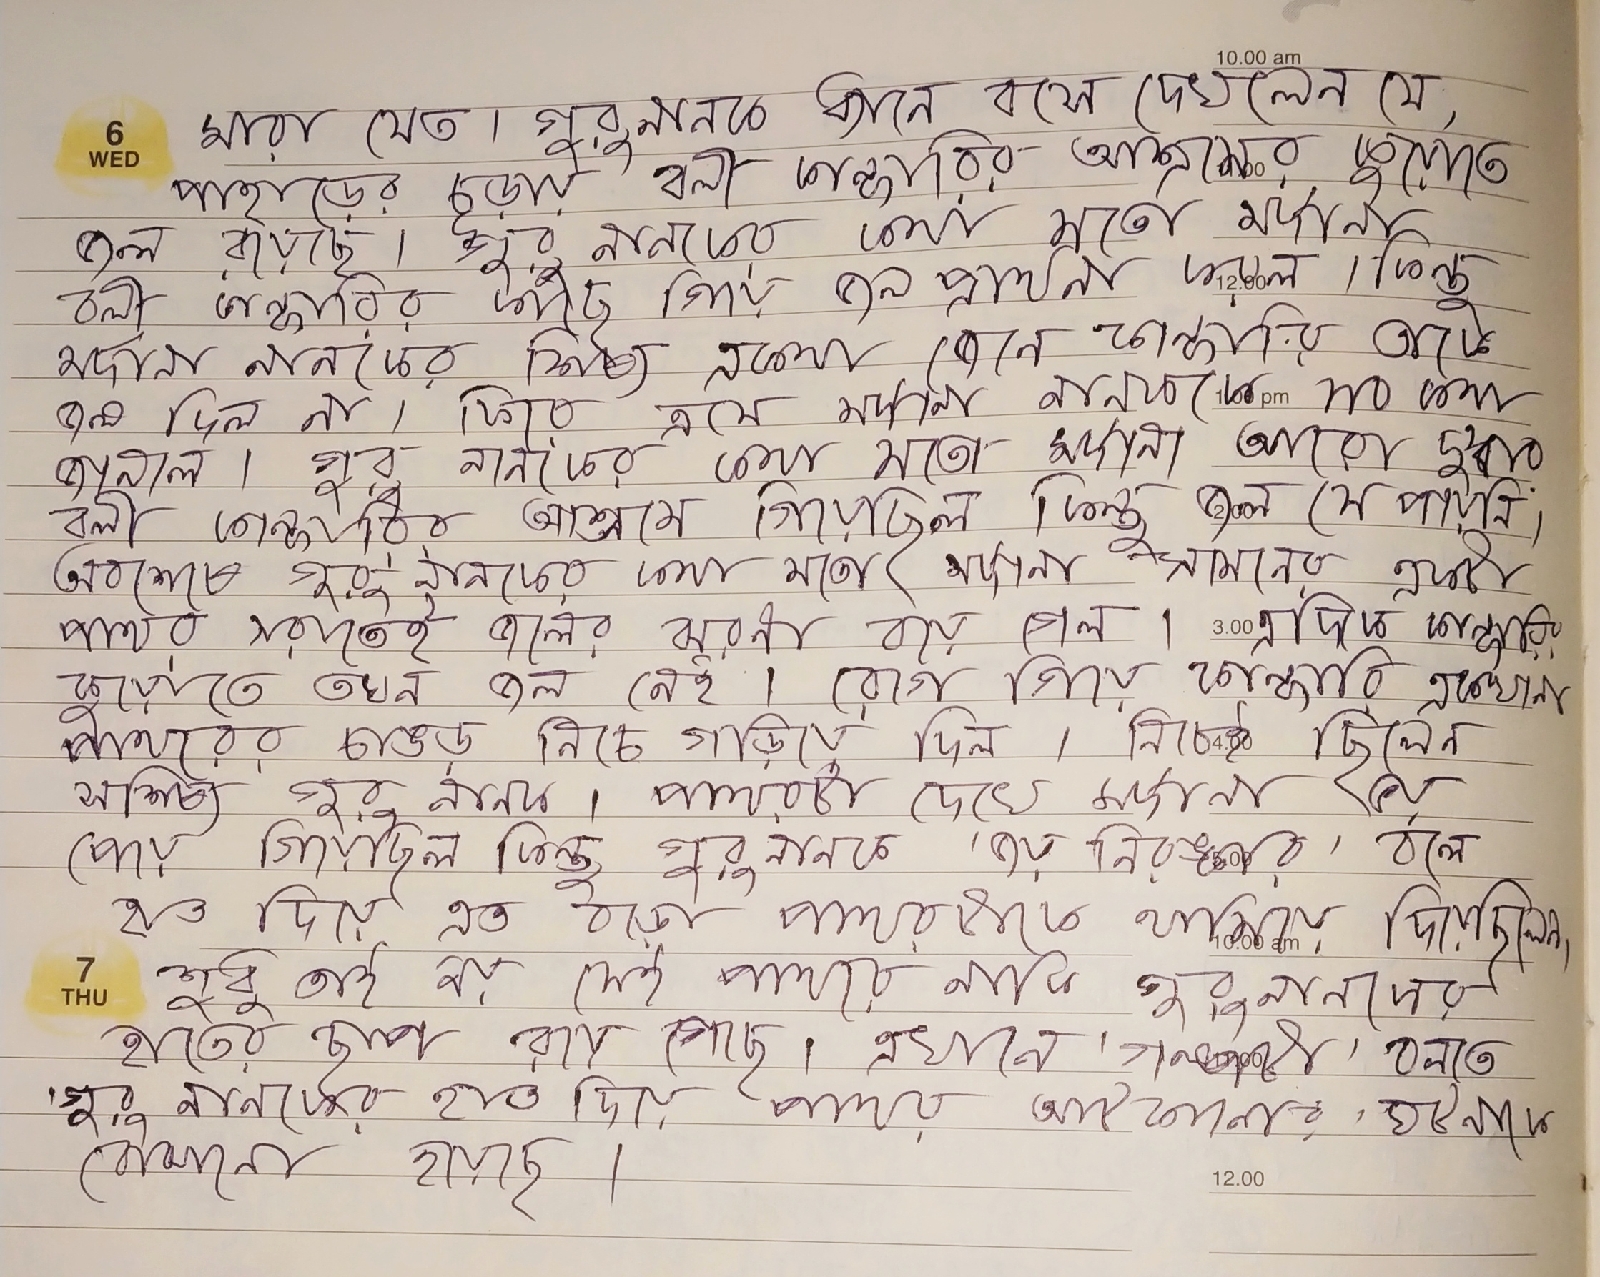 10.00 am
6 মারা যেত। গুরুনানক ধ্যানে বসে দেখলেন যে,
WED
পাহাড়ের চূড়ায় বলী কান্ধারির আশ্রমের কুয়োতে
জল রয়েছে। গুরু নানকের কথা মতো মর্দানা
বলী কান্ধারির কাছে গিয়ে জল প্রার্থনা করল। কিন্তু
12.00
মর্দানা নানকের শিষ্য একথা জেনে কান্ধারি তাকে
জল দিল না। ফিরে এসে মর্দানা নানককে সব কথা
1.00 pm
জানাল। গুরু নানকের কথা মতো মর্দানা আরো দুবার
বলী কান্ধারির আশ্রমে গিয়েছিল কিন্তু জল সে পায়নি।
অবশেষে গুরু নানকের কথা মতো মর্দানা সামনের একটা
পাথর সরাতেই জলের ঝরনা বয়ে গেল। এদিকে কান্ধারির
3.00
কুয়োতে তখন জল নেই। রেগে গিয়ে কান্ধারি একখানা
পাথরের চাঙড় নিচে গড়িয়ে দিল। নিচেই ছিলেন
4.00
সশিষ্য গুরু নানক। পাথরটা দেখে মর্দানা ভয়
পেয়ে গিয়েছিল কিন্তু গুরুনানক 'জয় নিরঙ্কার' বলে
হাত দিয়ে এত বড়ো পাথরটাকে থামিয়ে দিয়েছিলেন,
10.00 am
7 শুধু তাই নয় সেই পাথরে নাকি গুরুনানকের
THU
হাতের ছাপ রয়ে গেছে। এখানে 'গল্পটা' বলতে
'গুরু নানকের হাত দিয়ে পাথর আটকানোর' ঘটনাকে
বোঝানো হয়েছে।
12.00